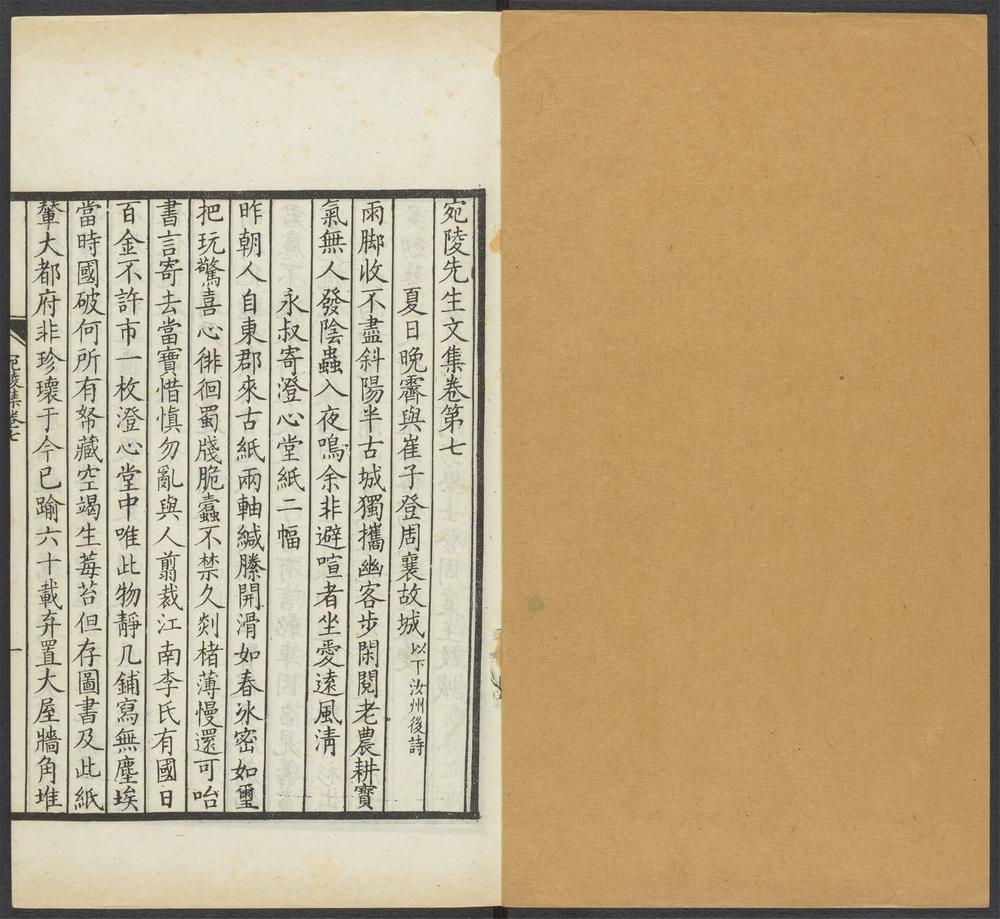 宛陵先生文集卷第七
夏日晚霽與崔子登周襄故城 以下汝州後詩
雨脚收不盡斜陽半古城獨攜幽客步閑閱老農耕寶
氣無人發陰蟲入夜鳴余非避喧者坐愛遠風清
永叔寄澄心堂紙二幅
昨朝人自東郡來古紙兩軸緘縢開滑如春冰密如璽
把玩驚喜心徘徊蜀牋脆蠹不禁久剡楮薄慢還可咍
書言寄去當寶惜慎勿亂與人翦裁江南李氏有國日
百金不許市一枚澄心堂中唯此物靜几鋪寫無塵埃
當時國破何所有帑藏空竭生莓苔但存圖書及此紙
輦大都府非珍瓌于今已踰六十載弃置大屋牆角堆
宛陵集卷七
一